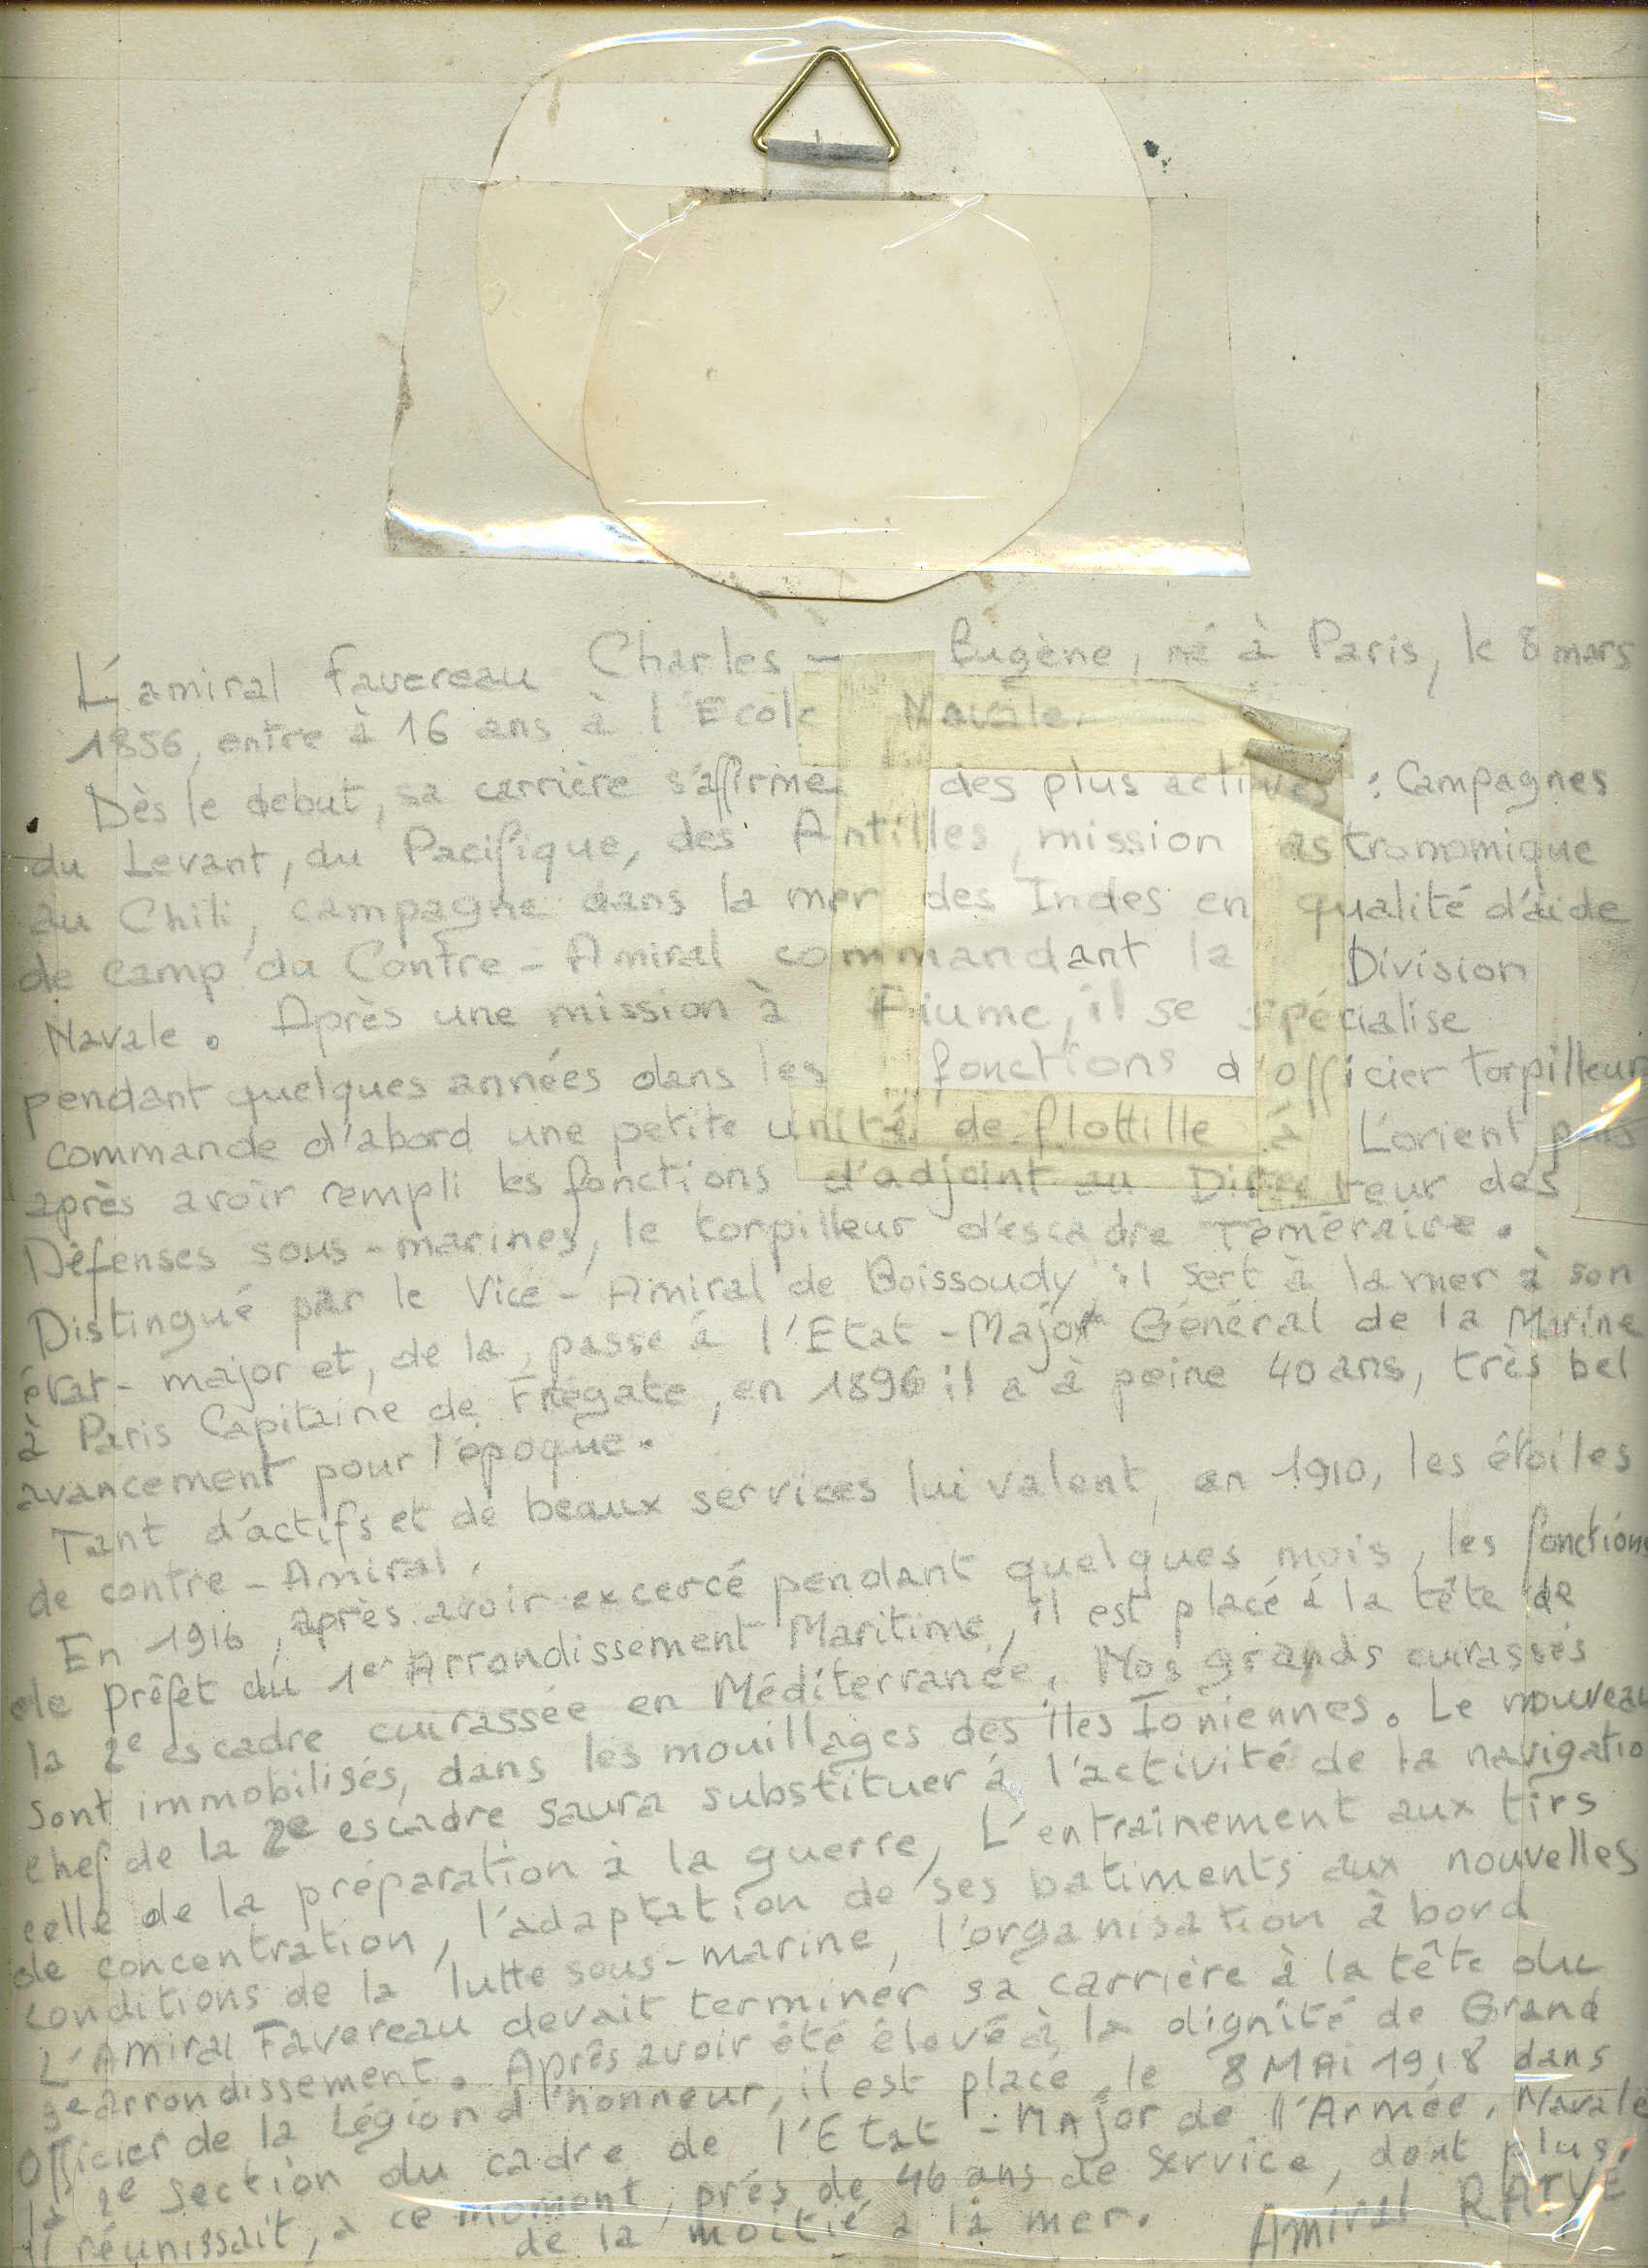 L'amiral Favereau Charles - Eugène, né à Paris, le 8 mars
1856, entre à 16 ans à l'Ecole Navale.
Dès le debut, sa carrière s'affirme des plus actives : Campagnes
du Levant, du Pacifique, des Antilles, mission astronomique
au Chili, campagne dans la mer des Indes en qualité d'aide
de camp du Contre - Amiral commandant la Division
Navale. Après une mission à Fiume, il se spécialise
pendant quelques années dans les fonctions d'officier torpilleur
commande d'abord une petite unité de flottille à L'orient puis
après avoir rempli les fonctions d'adjoint au Directeur des
Défenses sous-marines, le torpilleur d'escadre Téméraire.
Distingué par le Vice - Amiral de Boissoudy il sert à la mer à son
état-major et, de la, passe à l'Etat - Major Général de la Marine
à Paris Capitaine de Frégate, en 1896 il a à peine 40 ans, très bel
avancement pour l'époque.
Tant d'actifs et de beaux services lui valent, en 1910, les étoiles
de contre - Amiral.
En 1916, après avoir excercé pendant quelques mois, les fonctions
de préfet du 1er Arrondissement Maritime, il est placé à la tête de
la 2e escadre cuirassée en Méditerranée. Nos grands cuirassés
sont immobilisés, dans les mouillages des Iles Ioniennes. Le nouveau
chef de la 2e escadre saura substituer à l'activité de la navigatio
celle de la préparation à la guerre, L'entrainement aux tirs
de concentration, l'adaptation de ses batiments aux nouvelles
conditions de la lutte sous-marine, l'organisation à bord
L'Amiral Favereau devait terminer sa carrière à la tête du
arrondissement. Après avoir été élevé à la dignité de Grand
Officier de la Légion d'honneur, il est placé, le 8 MAi 1918 dans
la 2e section du cadre de l'Etat - Major de l'Armée, Navale
il réunissait, à ce moment, près de 46 ans de service, dont plus
de la moitié à la mer. Amiral